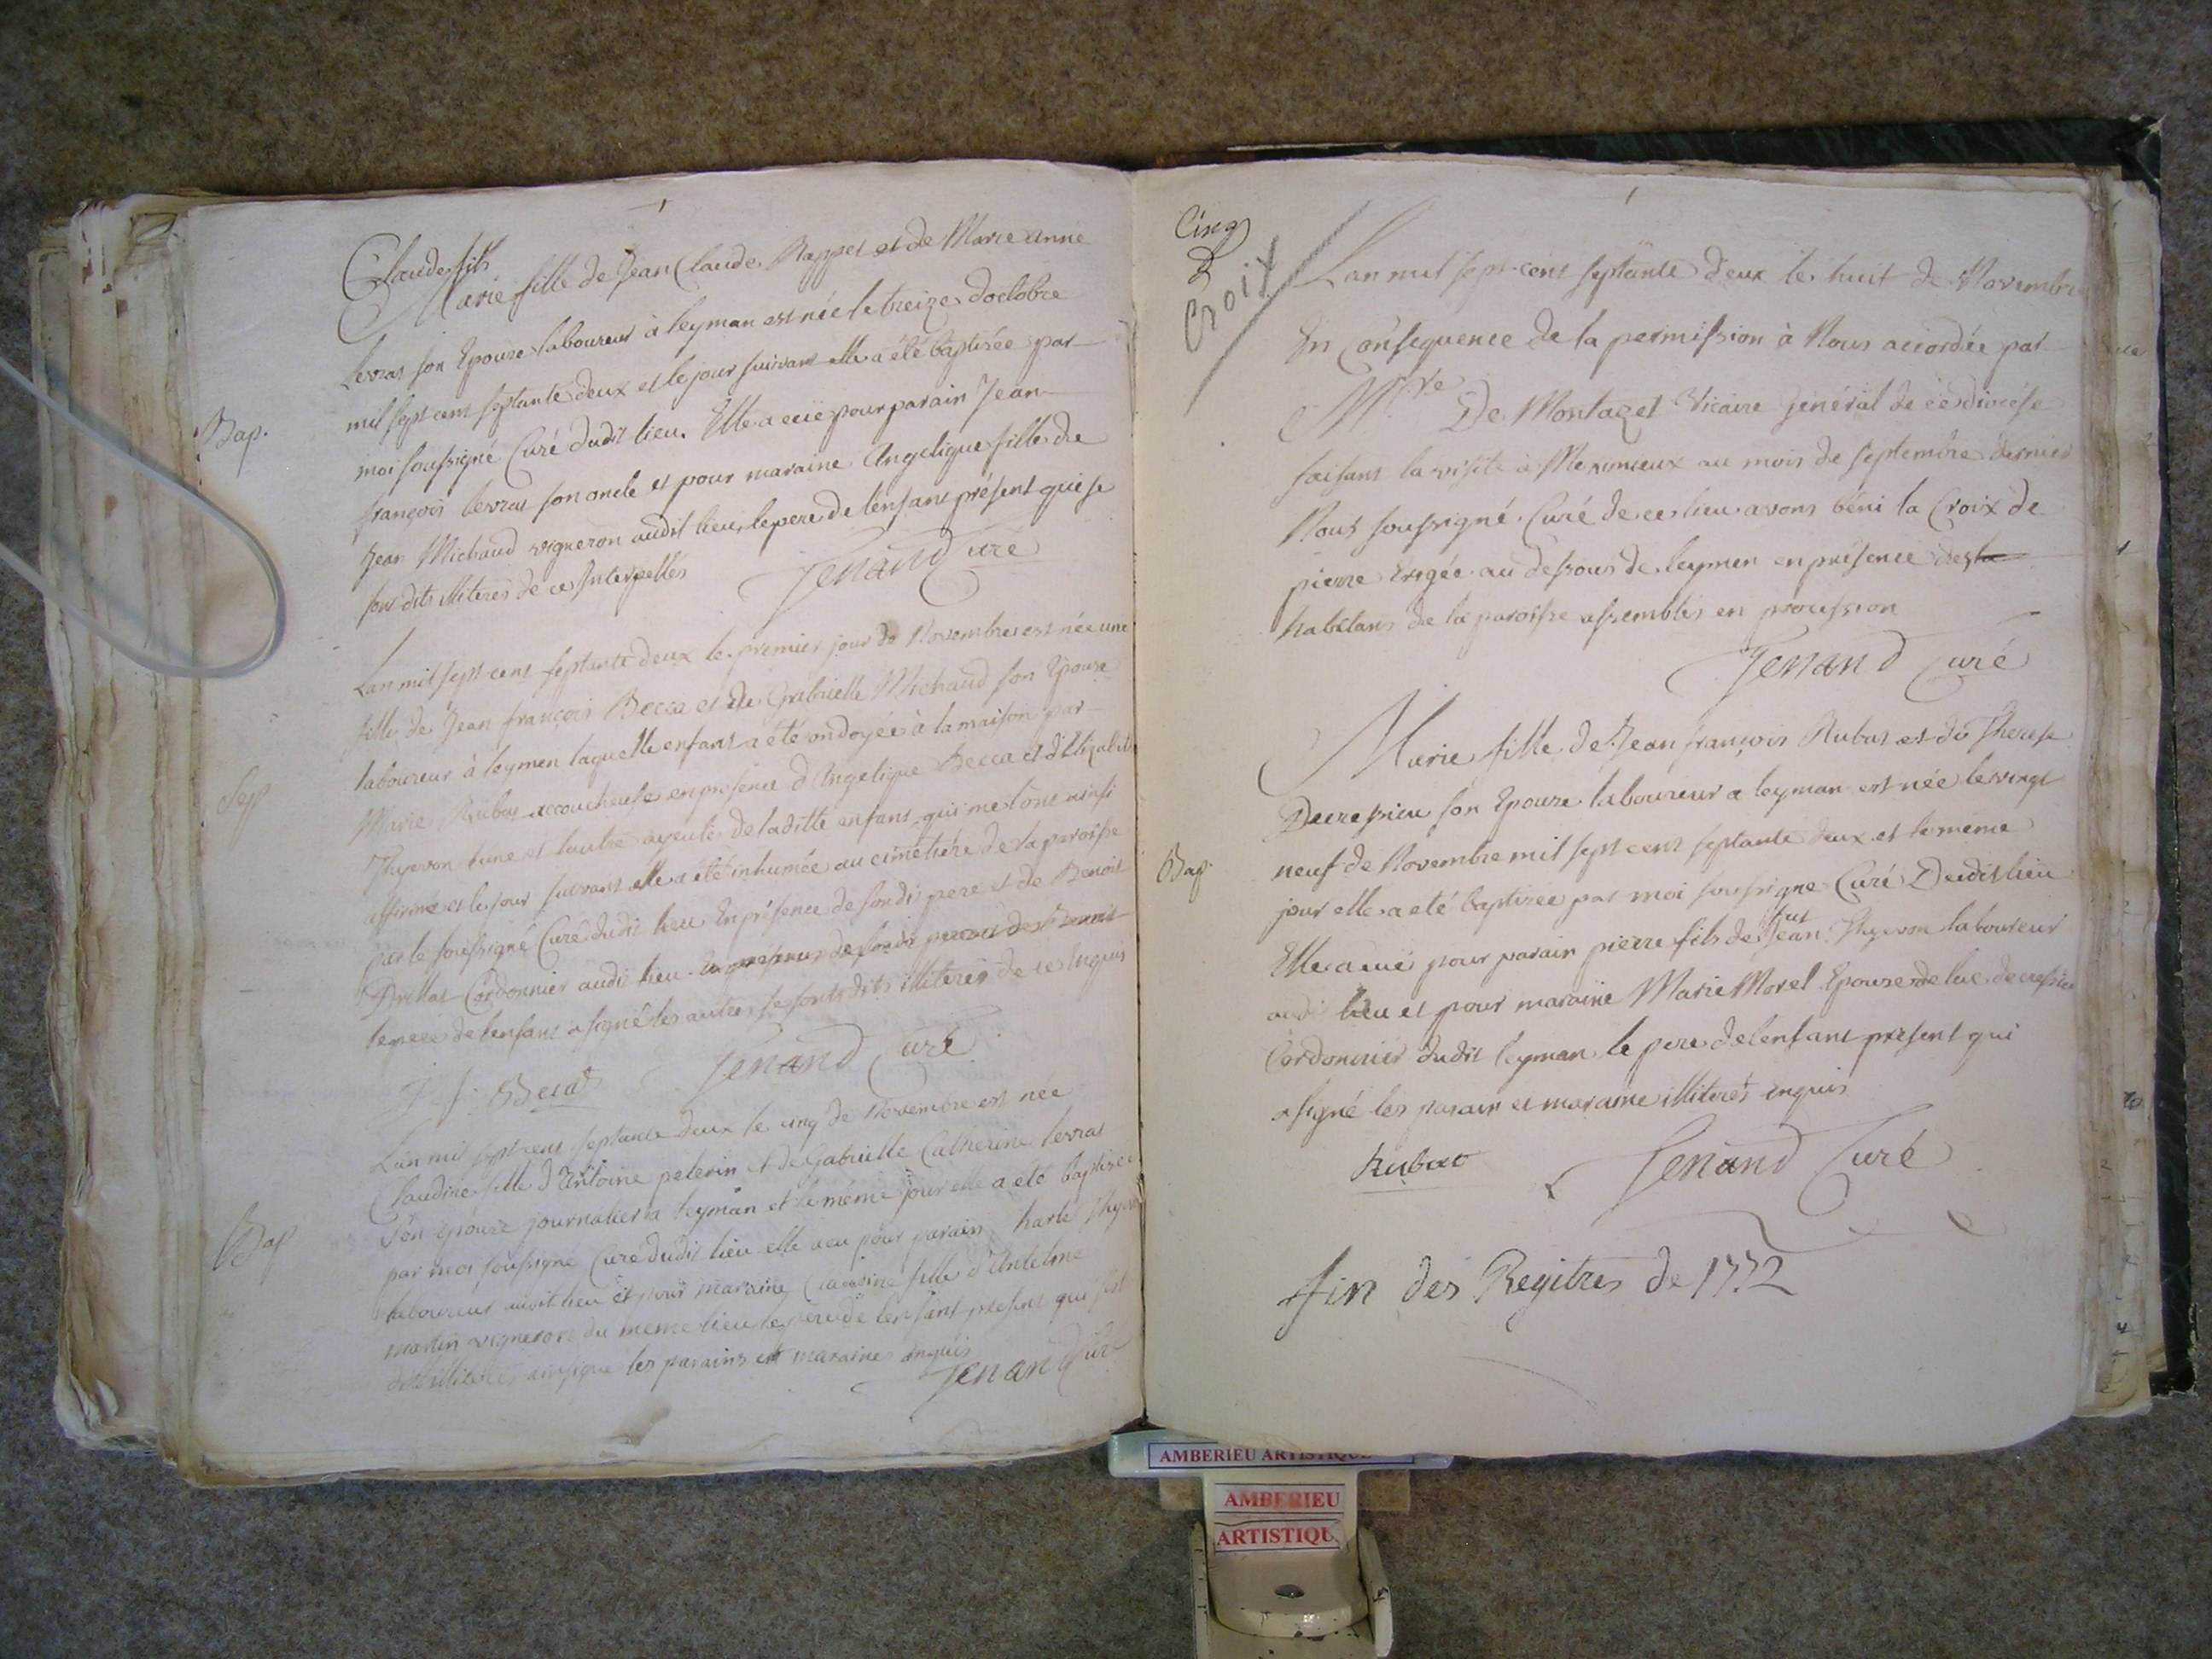 Claude fils
Marie fille de Jean Claude Rappet et de Marie anne
Levrat son Epouze laboureur à leyman est née le treize doctobre
mil sept cent septante deux et le jour suivant elle a été baptisée par
Bap.
moi soussigné Curé dudit lieu. Elle a eüe pour parain Jean
françois levrat son oncle et pour maraine Angelique fille de
Jean Michaud vigneron audit lieu, le pere de lenfant présent qui se
sont dits illiterés de ce Interpellés
Jenand Curé
Lan mil sept cent septante deux le premier jour de Novembre est née une
fille de Jean françois Becca et de Gabrielle Michaud son Epouze
laboureur à leymen laquelle enfant a été ondoyée à la maison par
Sep
Marie Rubat accoucheuse en presence d'Angelique Becca et d'Elizabeth
Thyevon lune et lautre ayeule de laditte enfant qui me l'ont ainsi
affirmé et le jour suivant elle a été inhumée au cimetiére de la paroisse
par le soussigné Curé dudit lieu En présence de sondit pere et de Benoit
Cordonnier audit lieu. En presence de sondit pere et de Benoit
le pere de lenfant a signé les autres se sont dits illiterés de ce Inquis
J f. Beca
Jenand Curé
Lan mil sept cent septante deux le cinq de Novembre est née
Claudine fille d'Antoine pelerin et de Gabrielle Catherine levrat
son epouze journalier a leyman et le même jour elle a eté baptisée
Bap
par moi soussigné Curé dudit lieu elle a eu pour parain
laboureur audit lieu et pour maraine Claudine fille d'Antelme
martin vigneron du meme lieu le pere de lenfant present qui
illiterés ainsi que les parains et maraine enquis
Jenand Curé
Cinq
Croix
Lan mil sept cent septante deux le huit de Novembre
En Conséquence de la permission à Nous accordée par
De Montazet Vicaire Général de ce diocése
faisant la visite à Meximieux au mois de septembre dernier
Nous soussigné Curé de ce lieu avons béni la Croix de
pierre Erigée au dessous de leymen en présence des
habitans de la paroisse assemblés en procession
Jenand Curé
Marie fille de Jean françois Rubat et de Therese
Decressieu son Epouze laboureur a leyman est née le vingt
neuf de Novembre mil sept cent septante deux et le même
Bap
jour elle a eté baptisée par moi soussigné Curé Dudit lieu
Elle a eüe pour parain pierre fils de feut Jean Thyevon laboureur
audit lieu et pour maraine Marie Morel Epouze de luc decressieu
Cordonnier dudit leyman le pere de lenfant present qui
a signé les parain et maraine illiterés enquis
Rubat
Jenand Curé
fin des Regitres de 1772
AMBERIEU ARTISTIQUE
AMBERIEU
ARTISTIQU